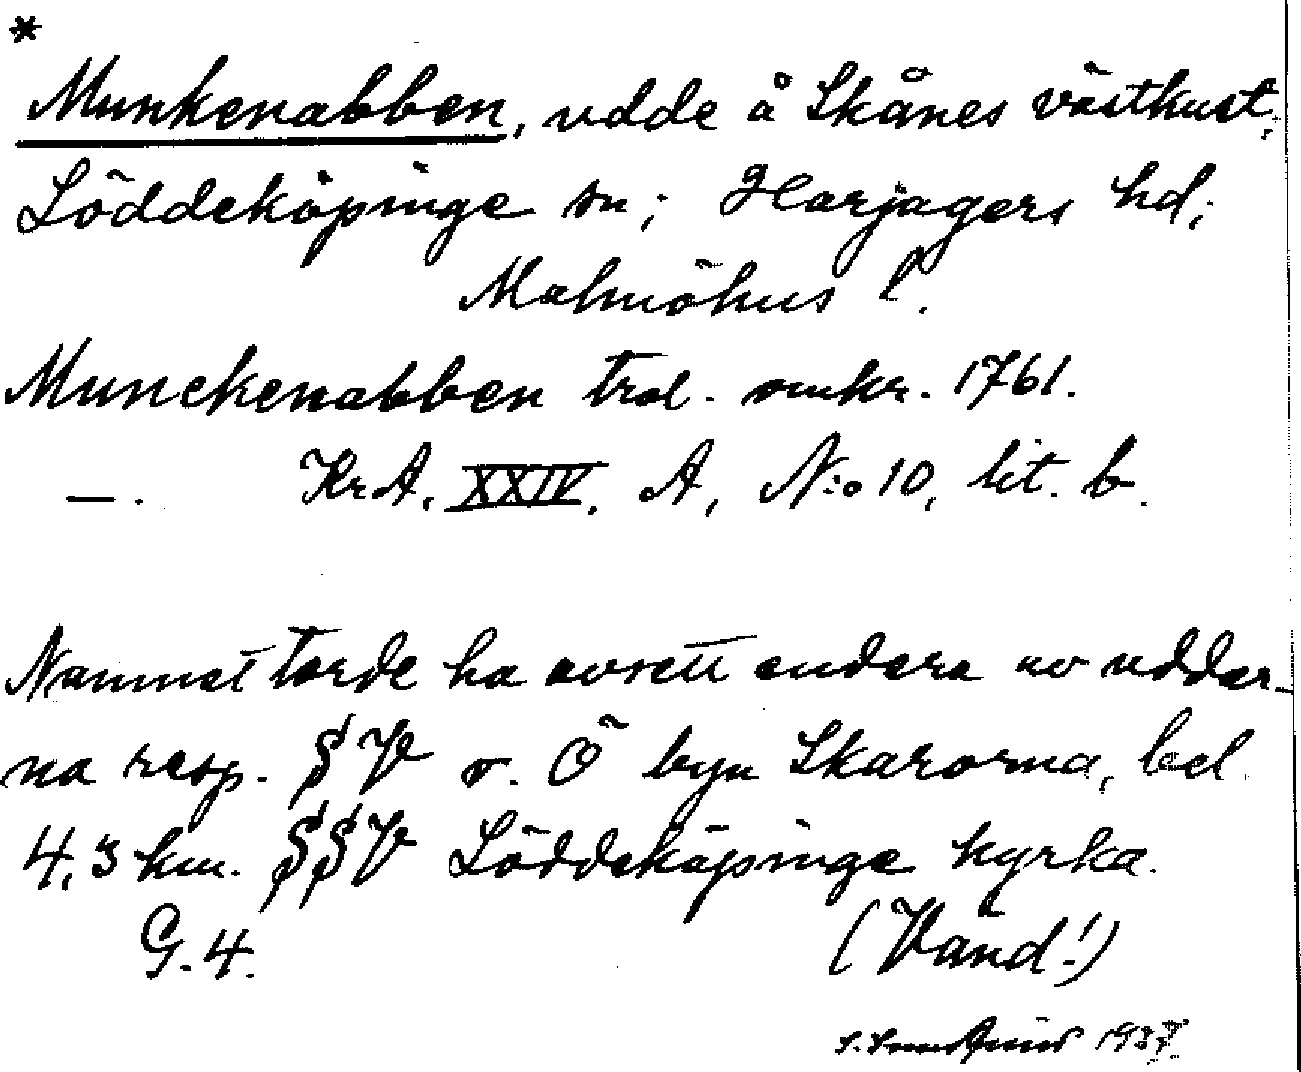 *
Munkenabben, udde å Skånes västkust;
Löddeköpinge sn; Harjagers hd;
Malmöhus l.
Munckenabben trol. omkr. 1761.
—. KrA, XXIV. A, N:o 10, lit. b.
Namnet torde ha avsett endera av uddar-
na resp. SV o. Ö byn Skarorna, bel.
4,3 km. SSV Löddeköpinge kyrka.
G. 4. (Vänd!)
1937